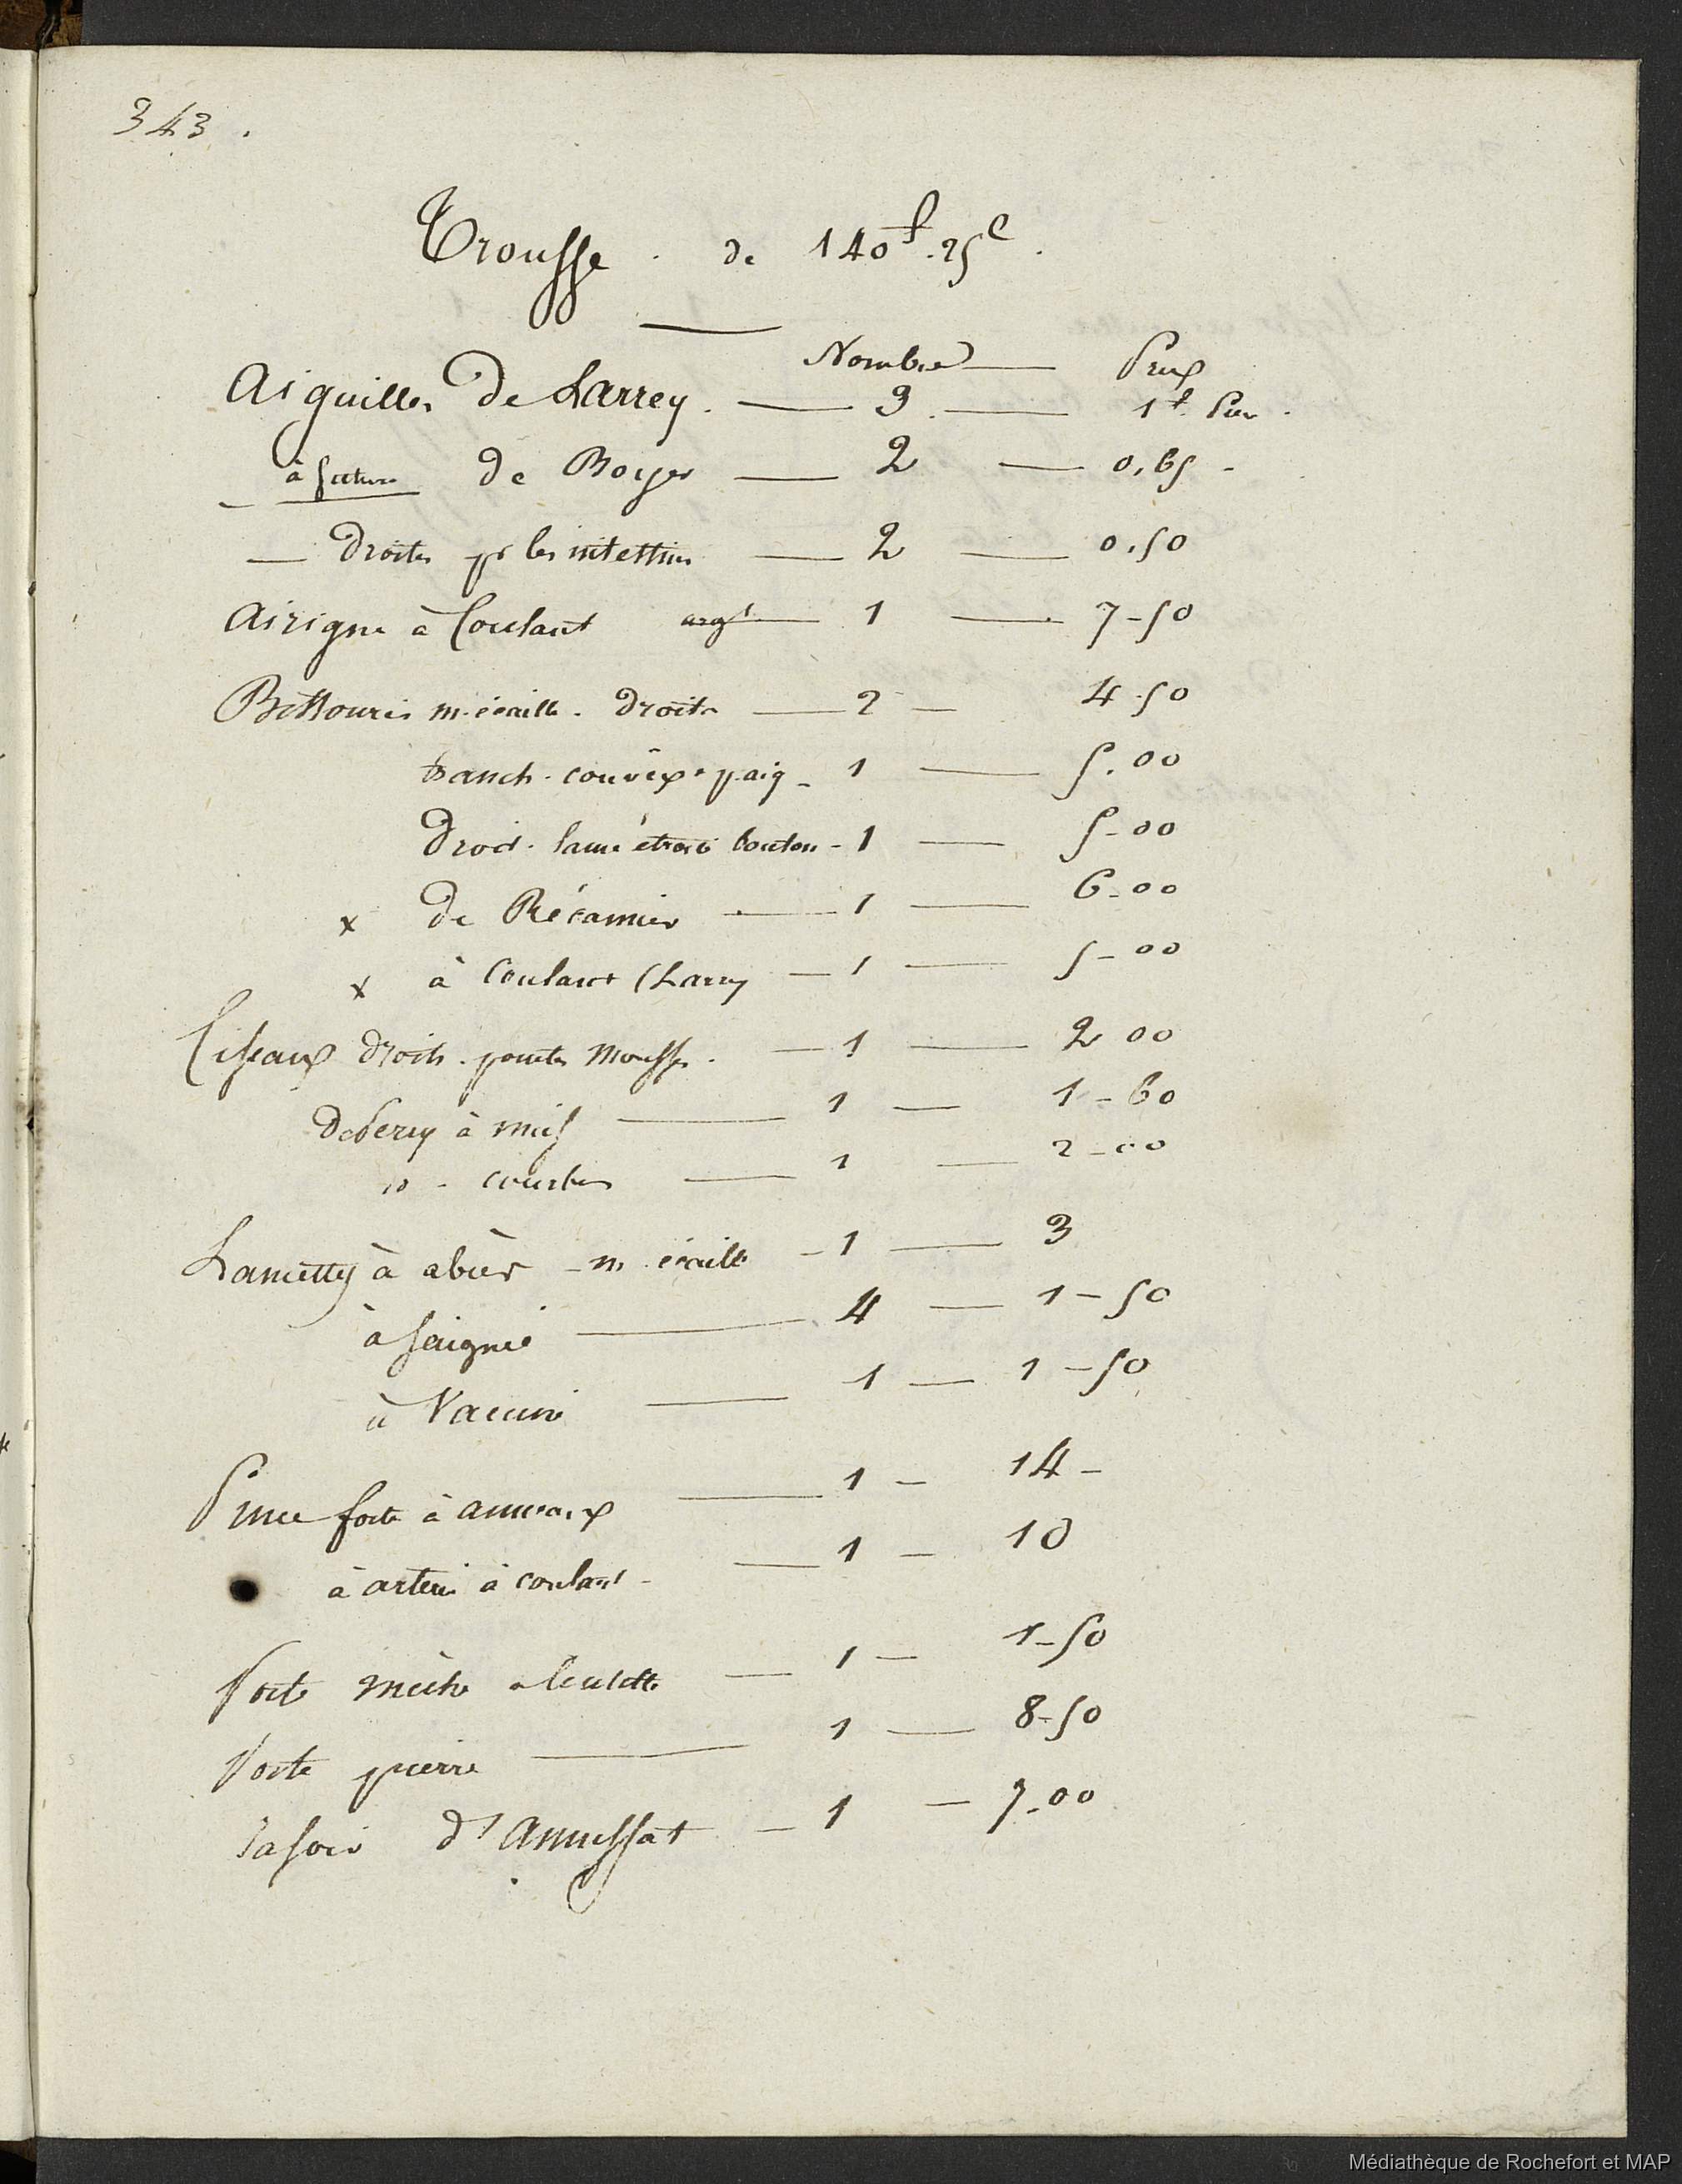 343.
Trousse . de 140f.25c.
Nombre — Prix
Aiguilles de Larrey. — 3. — 1f.
à suture de Boyer — 2 — 0.65 -
— Droites pr les intestins — 2 — 0.50
Airigne à Coulant argt — 1 — 7-50
Bistouris m. écaille. Droits — 2 — 4.50
tranch. convexe . 1 — 5.00
Droit. lame étroite bouton - 1 — 5-00
x de Récamier — 1 — 6-00
x à Coulant (Larrey — 1 — 5-00
Ciseaux droits . pointes mousses . — 1 — 2 00
De Percy à — 1 — 1-60
courbes — 1 — 2-00
Lancettes à abcès - m. écaille - 1 — 3
à saigner — 4 — 1-50
à Vaccine — 1 — 1-50
Pince forte à anneaux — 1 — 14-
à artère à coulant - — 1 — 10
Porte mèche — 1 — 1-50
Porte pierre — 1 — 8-50
rasoir d'Amussat — 1 — 7.00
Médiathèque de Rochefort et MAP